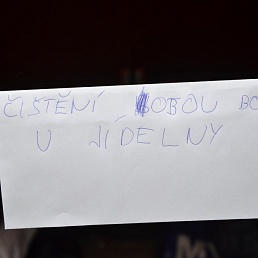 ČIŠTĚNÍ OBOU BO
U JÍDELNY